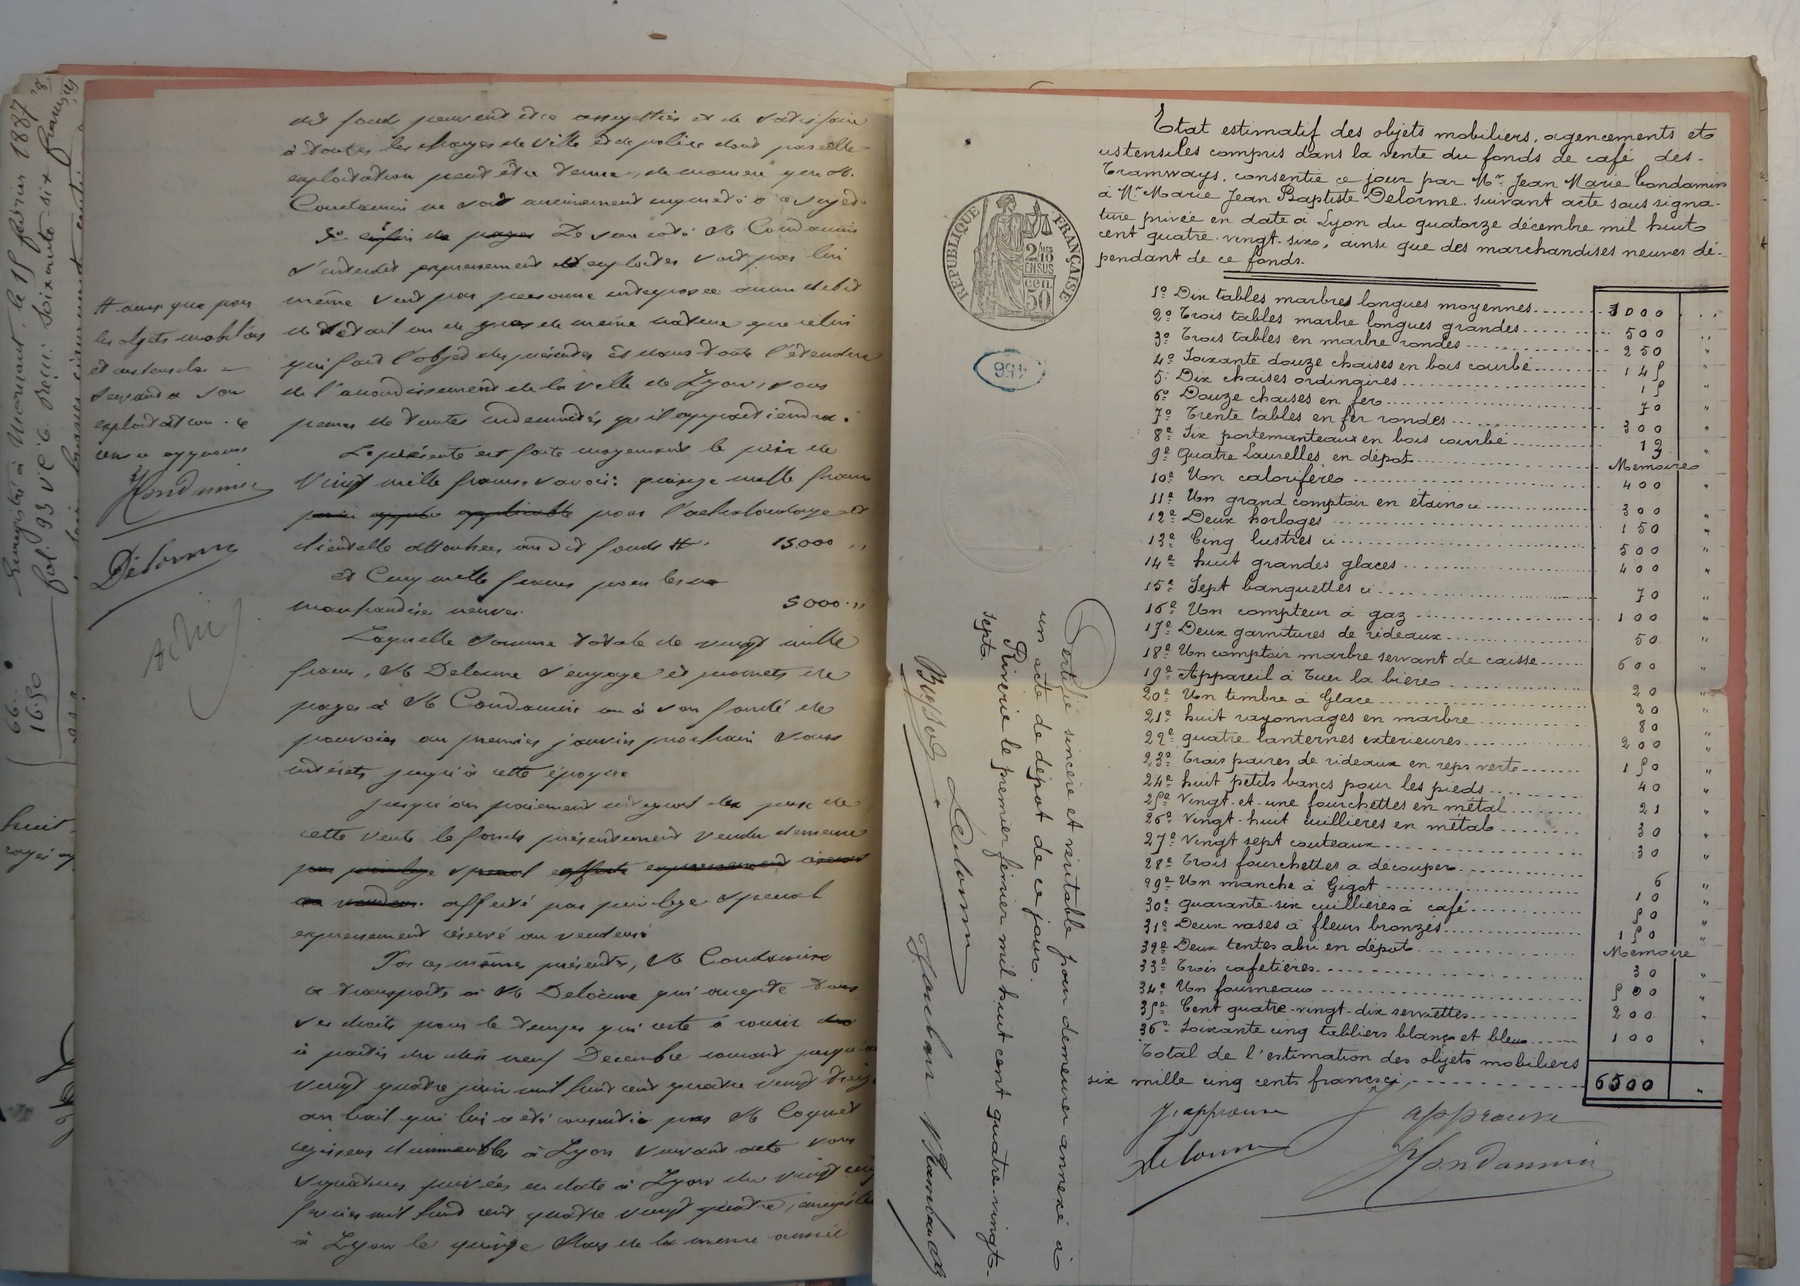 dit fonds peuvent être assujettis et de satisfaire
à toutes les charges de ville et de police dont pareille
exploitation peut être tenue, de manière que M.
Condamin ne soit aucunement inquiété à ce sujet.
5° enfin de payer De son coté M Condamin
s'interdit expressement d'exploiter soit par lui
même soit par personne interposée aucun débit
de détail ou de gros de même nature que celui
qui fait l'objet des présentes et dans toute l'étendue
de l'arrondissement de la ville de Lyon, sous
peine de toutes indemnités qu'il appartiendra.
La présente est faite moyennant le prix de
Vingt mille francs savoir: quinze mille francs
pour l'achalandage et
clientelle attachés au dit fonds # 15.000 "
et Cinq mille francs pour les
marchandises neuves. 5000 "
Laquelle somme totale de vingt mille
francs, M Delorme s'engage et promets de
payer à M Condamin ou à son fondé de
pouvoirs au premier janvier prochain sans
intérets jusqu'à cette époque
Jusqu'au paiement intégral du prix de
cette vente le fonds présentement vendu demeure
par privilege special affecté expressement réservé
au vendeur. affecté par privilege special
expressement réservé au vendeur
Par ces mêmes présentes, M Condamin
a transporté à M Delorme qui accepte tous
ses droits pour le temps qui reste à courir
à partir du dix neuf Décembre courant jusqu'au
vingt quatre juin mil huit cent quatre vingt
au bail qui lui a été consenti par M Coquet
régisseur d'immeubles à Lyon suivant acte sous
signatures privées en date à Lyon du vingt cinq
février mil huit cent quatre vingt quatre, enregistré
à Lyon le quinze Mars de la meme année
# ainsi que pour
les objets mobiliers
et ustensiles
servant à son
exploitation
Condamin
Delorme
Enregistré à Mornant, le 15 février 1887
fol. 93 V° c. 6. Reçu: soixante six francs
66.
16.50
huit
rayés
Etat estimatif des objets mobiliers, agencements et
ustensiles compris dans la vente du fonds de café des
Tramways, consentie ce jour par Mr. Jean Marie Condamin
à Mr Marie Jean Baptiste Delorme, suivant acte sous signa-
ture privée en date à Lyon du quatorze décembre mil huit
cent quatre-vingt-six, ainsi que des marchandises neuves dé-
pendant de ce fonds.
RÉPUBLIQUE FRANÇAISE
2/10 EN SUS
50 cen
496
1° Dix tables marbres longues moyennes 1000 "
2° Trois tables marbre longues grandes 500 "
3° Trois tables en marbre rondes 250 "
4° Soixante douze chaises en bois courbé 145 "
5° Dix chaises ordinaires 15 "
6° Douze chaises en fer 70 "
7° Trente tables en fer rondes 300 "
8° Six portemanteaux en bois courbé 13 "
9° Quatre Laurelles en dépôt Memoire
10° Un calorifère 400 "
11° Un grand comptoir en étain 300 "
12° Deux horloges 150 "
13° Cinq lustres 500 "
14° huit grandes glaces 400 "
15° Sept banquettes 70 "
16° Un compteur à gaz 100 "
17° Deux garnitures de rideaux 50 "
18° Un comptoir marbre servant de caisse 600 "
19° Appareil à tuer la biere 20 "
20° Un timbre à Glace 20 "
21° huit rayonnages en marbre 80 "
22° quatre lanternes exterieures 200 "
23° Trois paires de rideaux en reps verts 150 "
24° huit petits bancs pour les pieds 40 "
25° Vingt-et-une fourchettes en métal 21 "
26° Vingt-huit cuillieres en métal 30 "
27° Vingt sept couteaux 30 "
28° Trois fourchettes a découper 6 "
29° Un manche à Gigot 10 "
30° quarante-six cuillières à café 50 "
31° Deux vases à fleurs bronzés 150 "
32° Deux tentes abri en dépôt Mémoire
33° Trois cafetières 30 "
34° Un fourneau 500 "
35° Cent quatre-vingt-dix serviettes 200 "
36° Soixante cinq tabliers blancs et bleus 100 "
Total de l'estimation des objets mobiliers
six mille cinq cents francs 6500 "
J'approuve
Delorme
J approuve
Condamin
Certifié sincère et véritable pour demeurer annexé à
un acte de dépôt de ce jour.
Riverie le premier février mil huit cent quatre-vingt-
sept.
Delorme